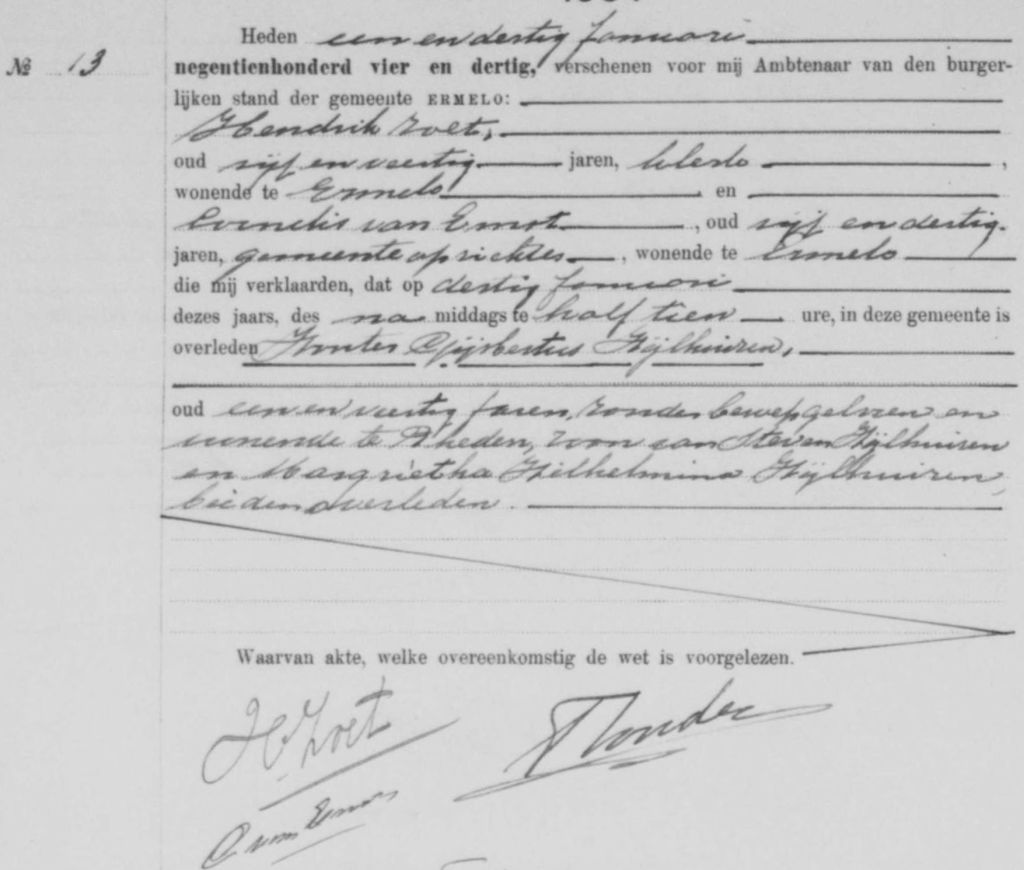 Heden een en dertig Januari
№ 13 negentienhonderd vier en dertig, verschenen voor mij Ambtenaar van den burger-
lijken stand der gemeente ERMELO:
Hendrik Zoet,
oud vijf en veertig jaren, klerk,
wonende te Ermelo en
Cornelis van Ernst, oud vijf en dertig
jaren, gemeente opzichter, wonende te Ermelo
die mij verklaarden, dat op dertig Januari
dezes jaars, des na middags te half tien ure, in deze gemeente is
overleden Wouter Gijsbertus Wijlhuizen,
oud een en veertig jaren, zonder beroep, geboren en
wonende te Rheden, zoon van Steven Wijlhuizen
en Margrietha Wilhelmina Wijlhuizen,
beiden overleden.
Waarvan akte, welke overeenkomstig de wet is voorgelezen.
H. Zoet
C van Ernst